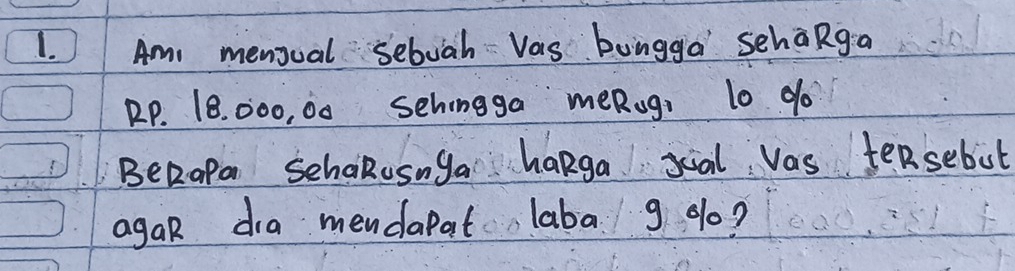 1. Ami menjual sebuah vas bungga sehaRga
RP. 18.000,00 sehingga meRugi 10 %
BeRaPa sehaRusnya haRga jual vas teRsebut
agaR dia mendaPat laba 9 %?